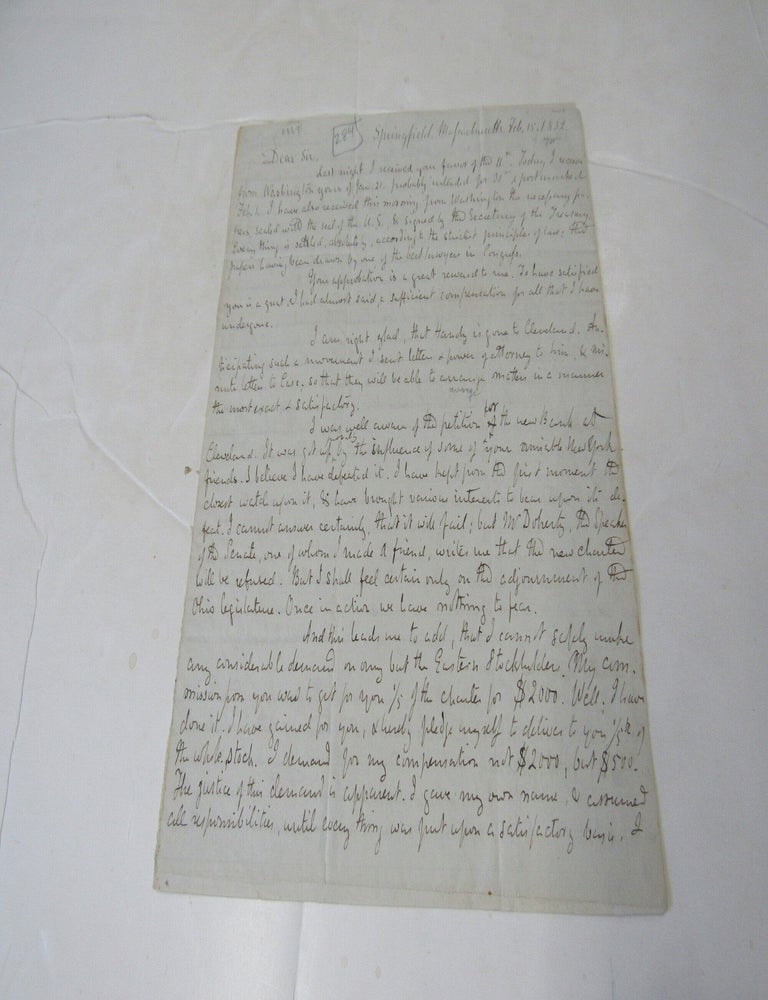 284
Springfield, Massachusetts. Feb. 15. 1832
Dear Sir,
Last night I received your favor of the 11th. Today I receive
from Washington yours of Jan. 21. probably intended for 31st & postmarked
Feb. 1. I have also received this morning from Washington the necessary pa-
pers, sealed with the seal of the U.S., & signed by the Secretary of the Treasury.
Every thing is settled, absolutely, according to the strictest principles of law; the
papers having been drawn by one of the best lawyers in Congress.
Your approbation is a great reward to me. To have satisfied
you is a great & I had almost said a sufficient compensation for all that I have
undergone.
I am right glad, that Handy is gone to Cleveland. An-
ticipating such a movement I sent letters & power of attorney to him, & mi-
nute letter to Case. so that they will be able to arrange matters in a manner
the most exact & satisfactory.
I was well aware of the petition for the new Bank at
Cleveland. It was got up by the influence of some of your amiable New York
friends. I believe I have defeated it. I have kept from the first moment the
closest watch upon it, & have brought various interests to bear upon its de-
feat. I cannot answer certainly, that it will fail; but Mr Doherty, the Speaker
of the Senate, one of whom I made a friend, writes me that the new charter
will be refused. But I shall feel certain only on the adjournment of the
Ohio legislature. Once in action we have nothing to fear.
And this leads me to add, that I cannot safely make
any considerable demand on any but the Eastern Stockholders. My com-
mission from you was to get for you 1/5 of the charter for $2000. Well. I have
done it. I have gained for you, & hereby pledge myself to deliver to you 1/5th of
the whole stock. I demand for my compensation not $2000, but $500.
The justice of this demand is apparent. I gave my own name, & assumed
all responsibilities, until every thing was put upon a satisfactory basis. I